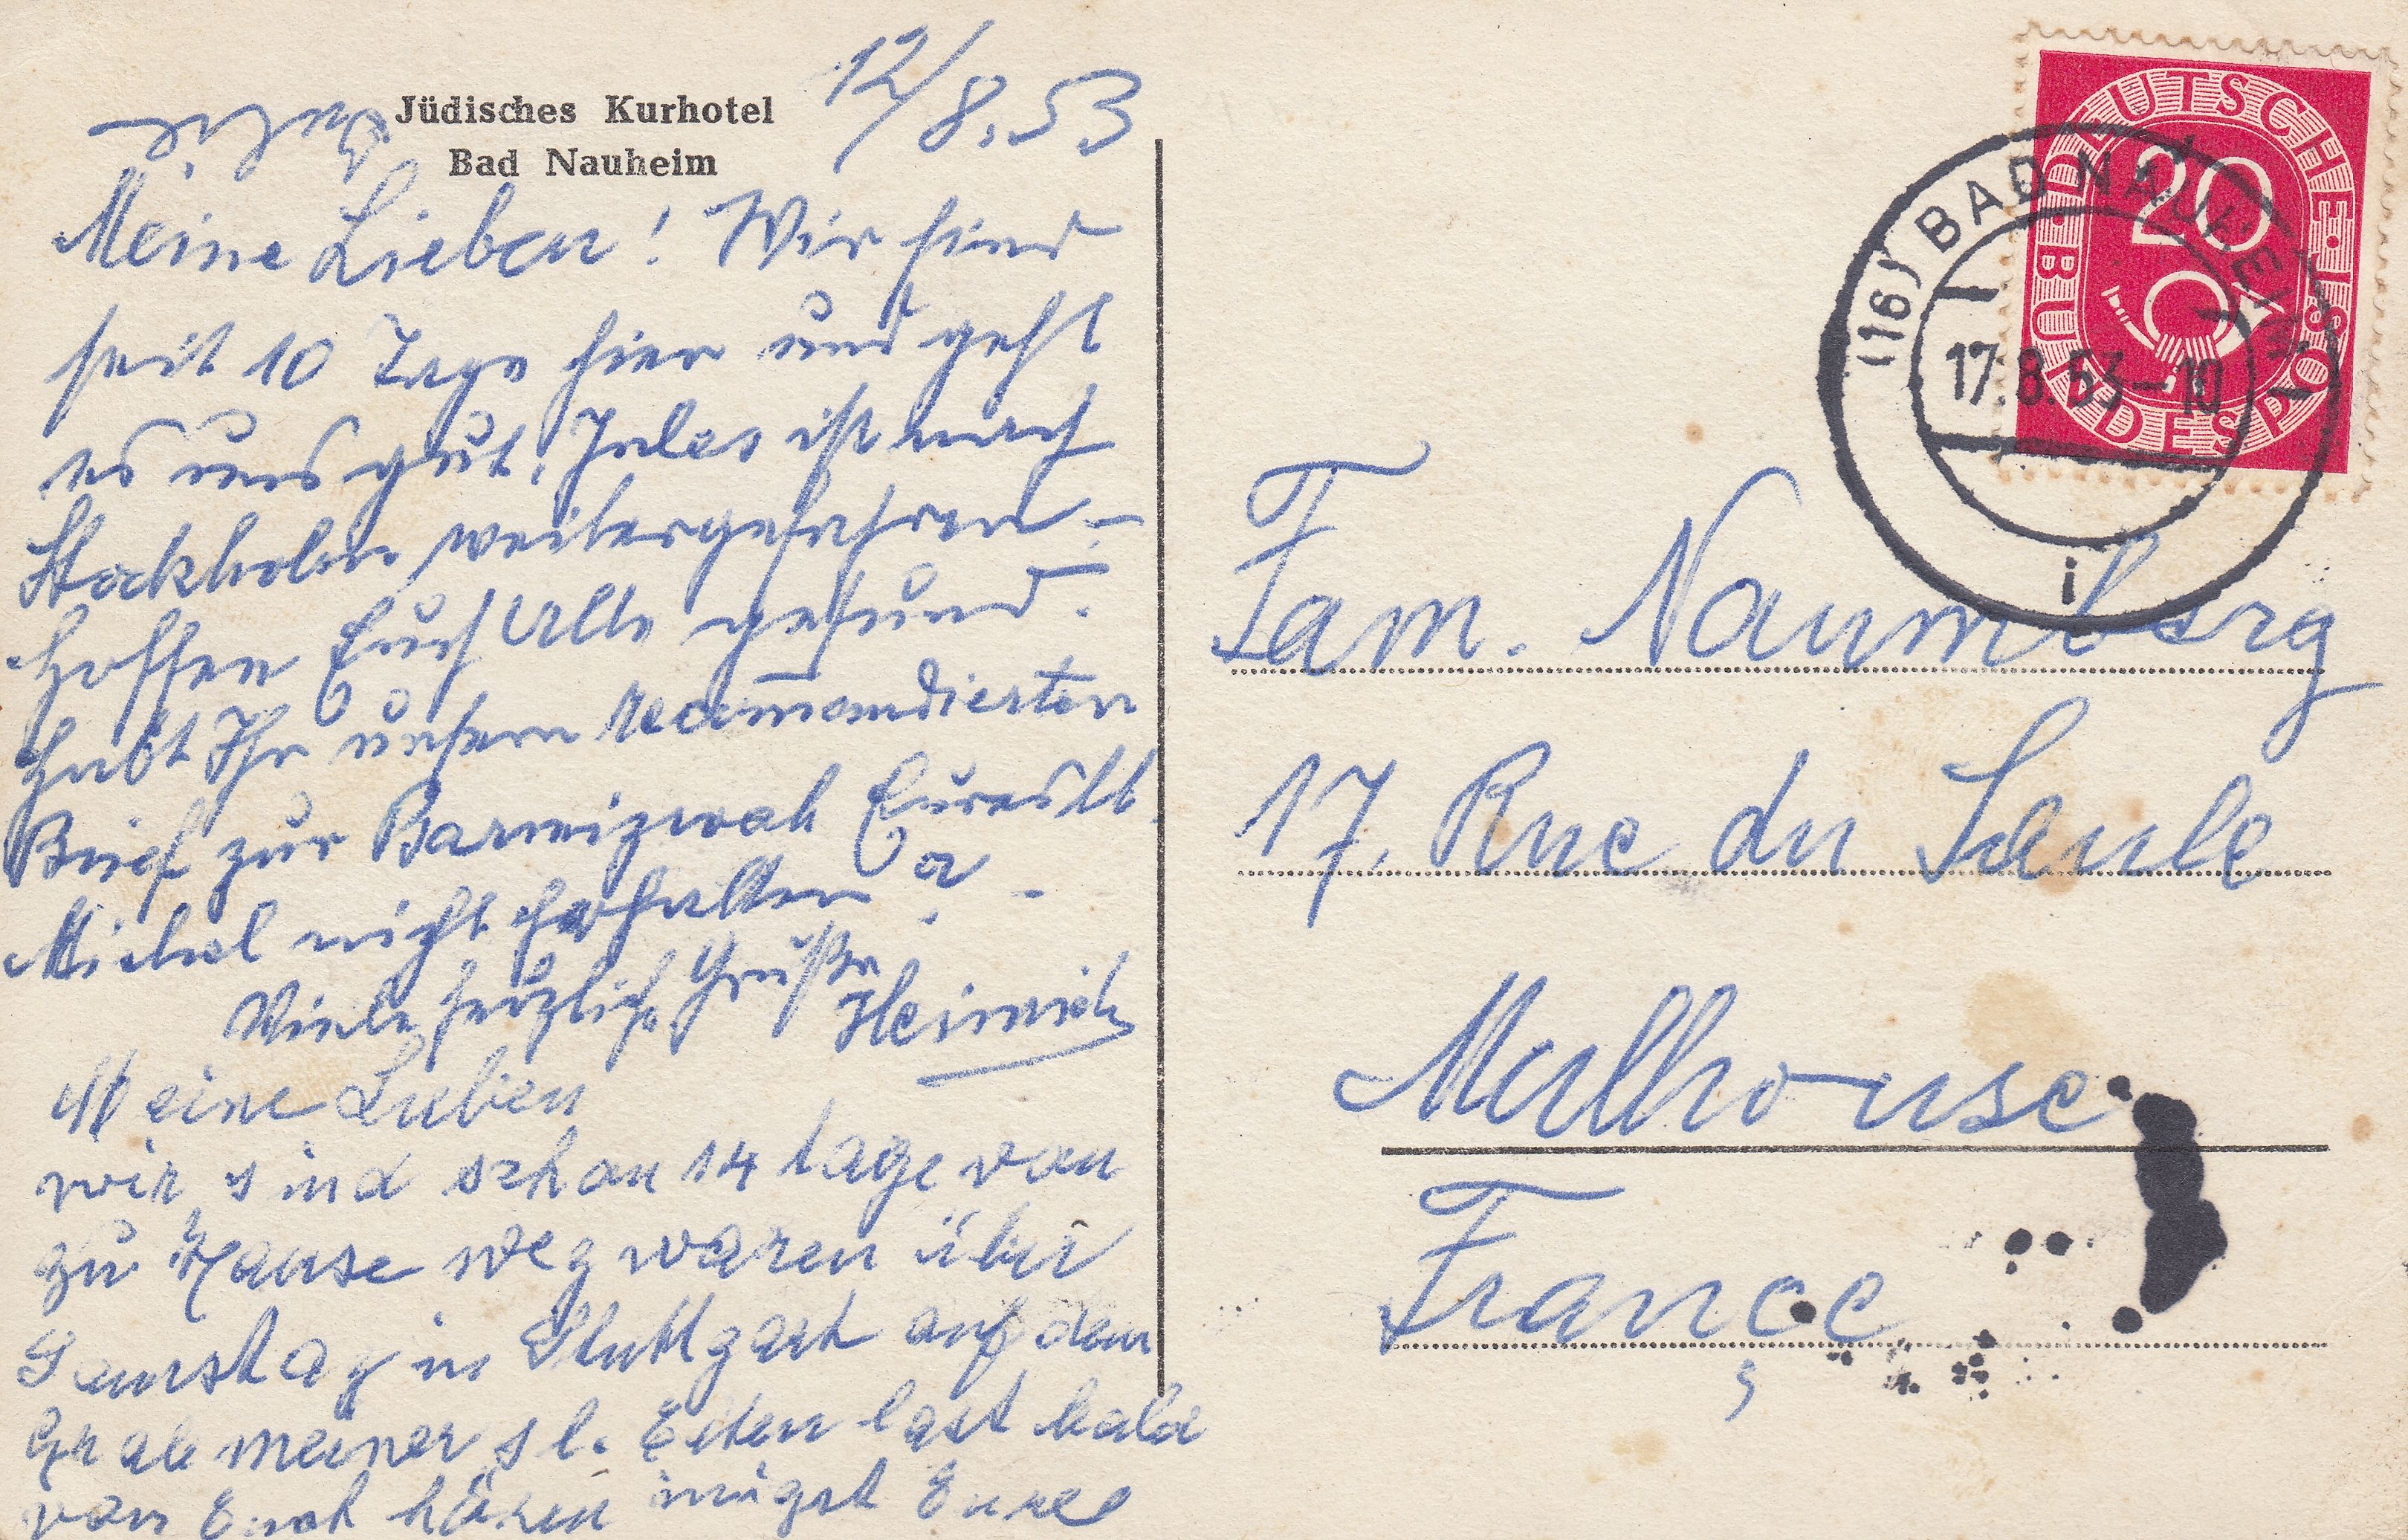 Jüdisches Kurhotel
Bad Nauheim
12/8.53
Meine Lieben! Wir sind
seit 10 Tage hier und geht
es uns gut. Jules ist nach
Stockholm weitergefahren –
hoffen Euch Alle gesund.
Habt Ihr unsern recommandierten
Brief zur Barmizwah Eures lb.
Michel nicht erhalten? –
Viele herzliche Grüße
Heinrich
Meine Lieben
wir sind schon 14 tage von
zu Hause weg waren über
Samstag in Stuttgart auf dem
Grab meiner sl. Eltern last bald
von Euch hören innigst Eure
DEUTSCHE BUNDESPOST
20
(16) BAD NAUHEIM
17.8.53–10
i
Fam. Naumberg
17, Rue du Saule
Mulhouse
France